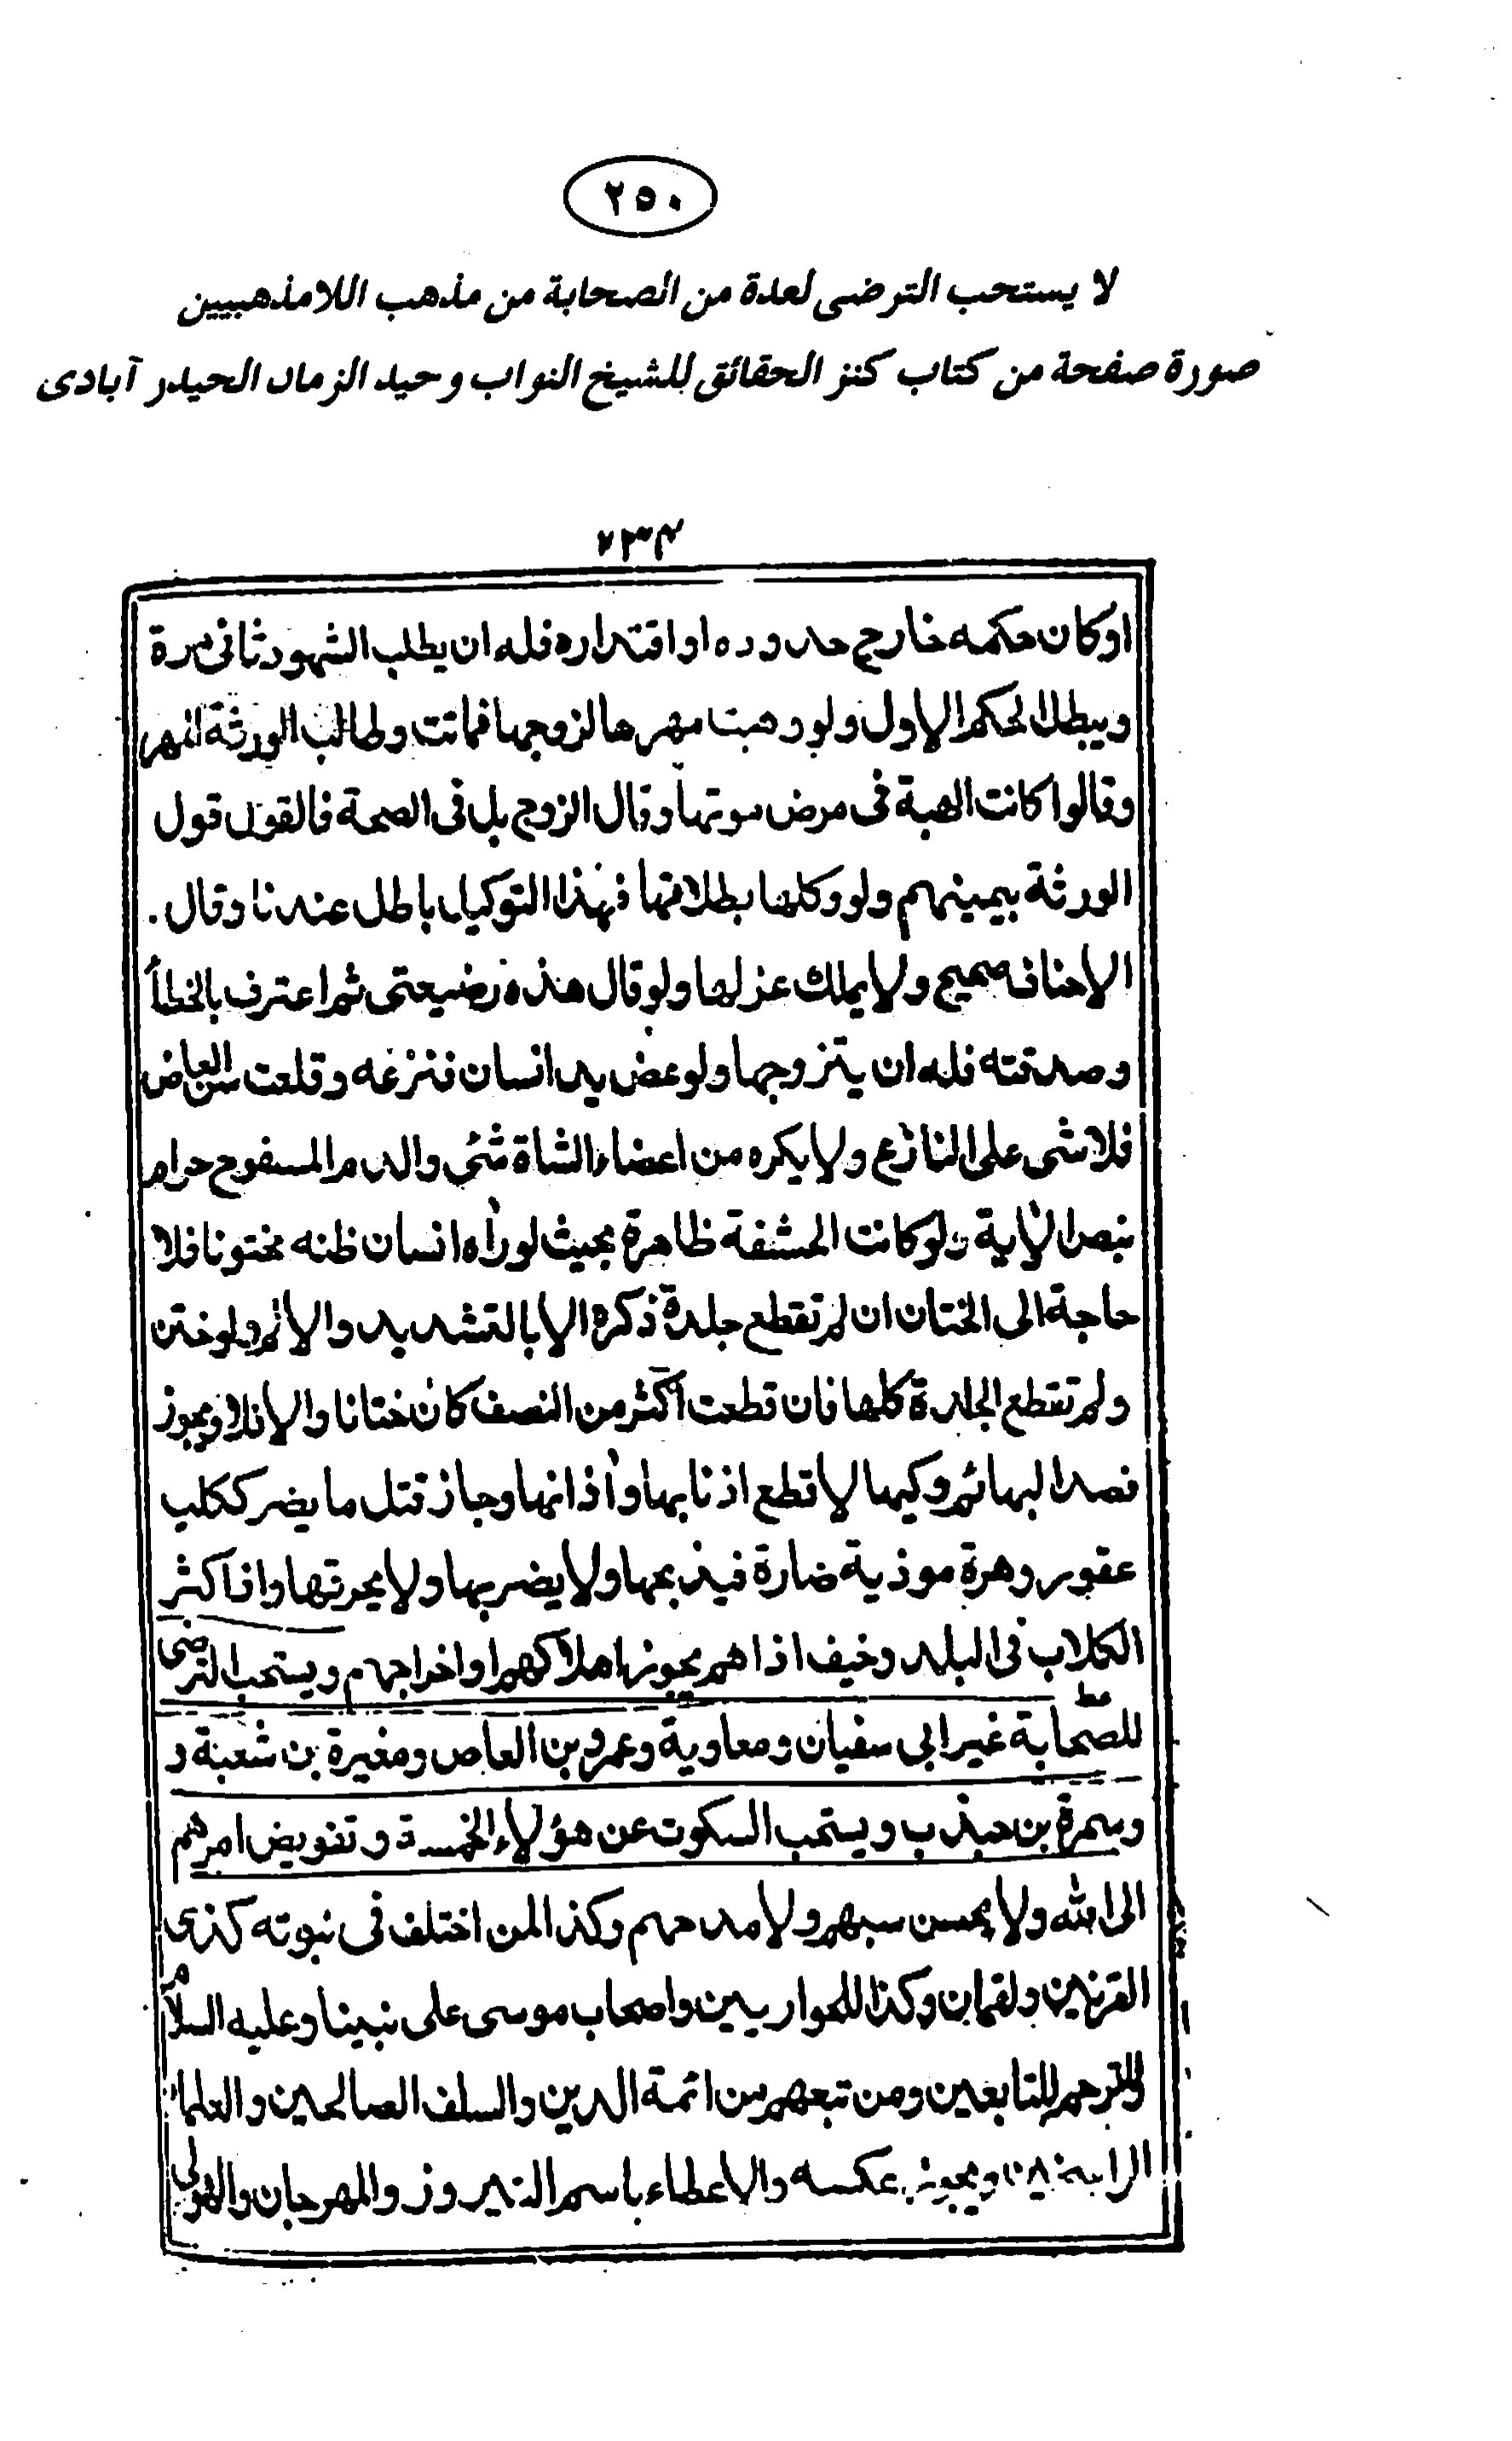 ٢٥٠
لا يستحب الترضى لعدة من الصحابة من مذهب اللامذهبيين
صورة صفحة من كتاب كنز الحقائق للشيخ النواب وحيد الزمان الحيدر آبادى
٢٣٤
اوكان حكمه خارج حدوده او اقتداره فله ان يطلب الشهود ثانى مرة
ويبطل الحكم الاول ولو وهبت مهرها لزوجها فماتت وطالب الورثة المهر
وقالوا كانت الهبة فى مرض موتها وقال الزوج بل فى الصحة فالقول قول
الورثة بيمينهم ولو وكلها بطلاقها فهذا التوكيل باطل عندنا وقال
الاحناف صحيح ولا يملك عزلها ولو قال هذه رضيعتى ثم اعترف بالخطأ
وصدقته فله ان يتزوجها ولو عض يد انسان فنزعه وقلعت سن العاض
فلا شى على النازع ولا يكره من اعضاء الشاة شئى والدم المسفوح حرام
بنص الأية ولو كانت الحشفة ظاهرة بحيث لو رأه انسان ظنه مختونا فلا
حاجة الى الختان ان لم تقطع جلدة ذكره الا بالتشديد والالم ولو ختن
ولم تقطع الجلدة كلها فان قطعت اكثر من النصف كان ختانا والا فلا ويجوز
فصد البهائم وكيها لا قطع اذنابها وأذانها وجاز قتل ما يضر ككلب
عقور وهرة موذية ضارة فيذبحها ولا يضربها ولا يحرقها واذا كثر
الكلاب فى البلد وخيف اذا هم يجوز اهلاكهم او اخراجهم ويستحب الترضى
للصحابة غير ابى سفيان ومعاوية وعمرو بن العاص ومغيرة بن شعبة و
وسمرة بن جندب ويستحب السكوت عن هؤلاء الخمسة وتفويض امرهم
الى الله ولا يحسن سبهم ولا مدحهم وكذا لمن اختلف فى نبوته كذى
القرنين ولقمان وكذا للحواريين واصحاب موسى على نبينا وعليه السلام
والترحم للتابعين ومن تبعهم من ائمة الدين والسلف الصالحين والعلماء
ويجوز عكسه والاعطاء باسم النيروز والمهرجان